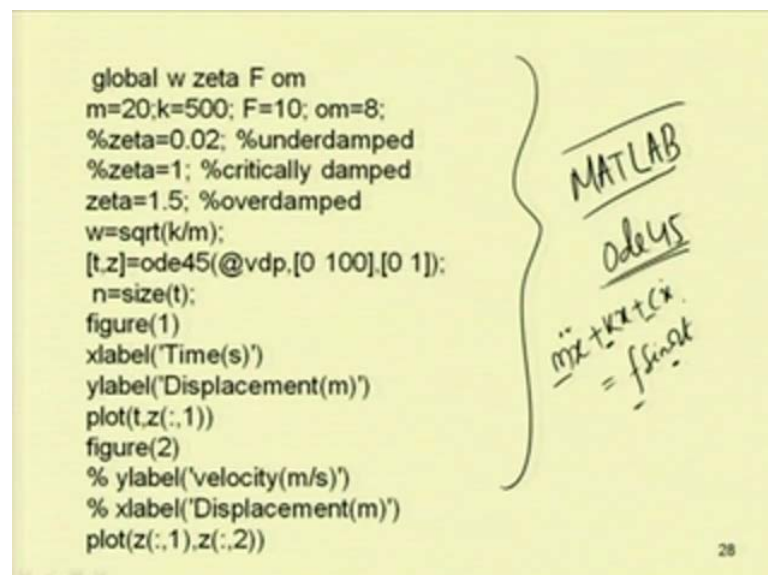 global w zeta F om
m=20;k=500; F=10; om=8;
%zeta=0.02; %underdamped
%zeta=1; %critically damped
zeta=1.5; %overdamped
w=sqrt(k/m);
[t,z]=ode45(@vdp,[0 100],[0 1]);
n=size(t);
figure(1)
xlabel('Time(s)')
ylabel('Displacement(m)')
plot(t,z(:,1))
figure(2)
% ylabel('velocity(m/s)')
% xlabel('Displacement(m)')
plot(z(:,1),z(:,2))
MATLAB
Ode45
mẍ+kx+cẋ
= f sinΩt
28